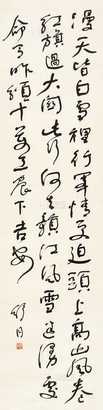 漫天皆白雪裡行軍情更迫頭上高山風卷
紅旗過大關此行何去贛江風雪迷漫處
命令昨頒十萬工農下吉安
舒同